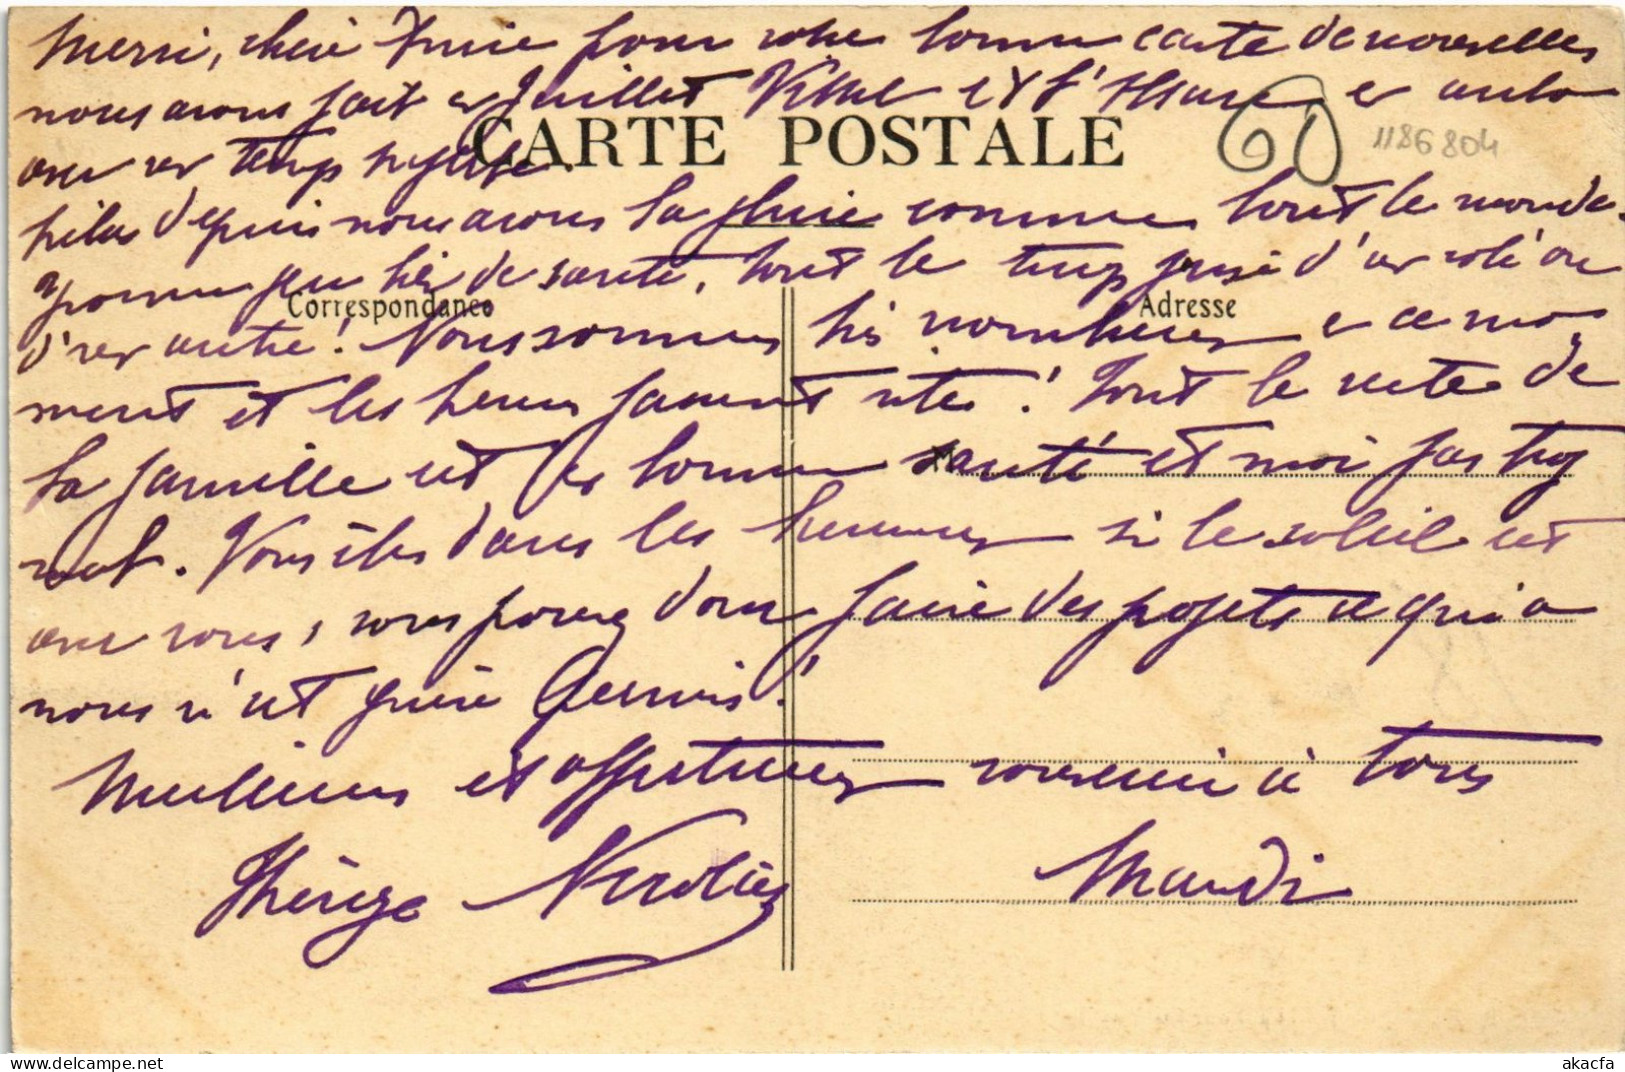 Merci, chère Amie pour votre bonne carte de nouvelles
nous avons fait en Juillet Vittel et l'Alsace en auto
CARTE POSTALE
60
1186804
avec un temps superbe.
hélas depuis nous avons la pluie comme tout le monde.
pour peu de santé, tout le temps passé d'un côté ou
Correspondance
Adresse
d'un autre! Nous sommes très nombreux en ce mo
ment et les heures passent vite! Tout le reste de
la famille est en bonne santé et moi pas trop
mal. Vous êtes dans les heureux si le soleil est
avec vous, vous pouvez donc faire des projets ce qui a
nous n'est guère permis!
Meilleurs et affectueux souvenir à tous
Thérèse
Mardi
akacfa